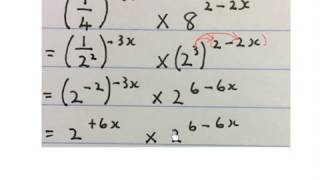 (1/4)^-3x × 8^2-2x
= (1/2^2)^-3x × (2^3)^2-2x)
= (2^-2)^-3x × 2^6-6x
= 2^+6x × 2^6-6x